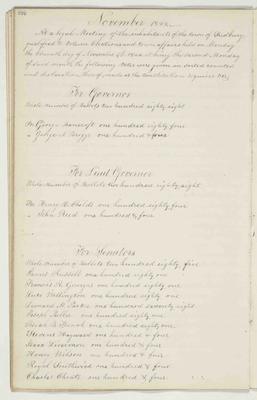 November 1844
At a legal Meeting of the inhabitants of the town of Sudbury
qualified to vote in Elections and town affairs held on Monday
the eleventh day of November A.D. 1844 it being the second Monday
of said month the following votes were given in sorted counted
and declaration thereof made as the Constitution requires viz
For Governor
Whole number of Ballots two hundred eighty eight
George Bancroft one hundred eighty four
" George N Briggs one hundred & four
For Lieut Governor
Whole Number of Ballots two hundred eighty eight
Henry H. Childs one hundred eighty four
" John Reed one hundred & four
For Senators
Whole number of Ballots two hundred eighty five
Russell one hundred eighty one
Francis R. Gourgas one hundred eighty one
Wellington one hundred eighty one
Leonard M. Parker one hundred seventy eight
Joseph Fuller one hundred eighty one
French one hundred eighty one
Stevens Hayward one hundred & four
Livermore one hundred & four
Henry Wilson one hundred & four
Royal Southwick one hundred & four
Charles Choate one hundred & four